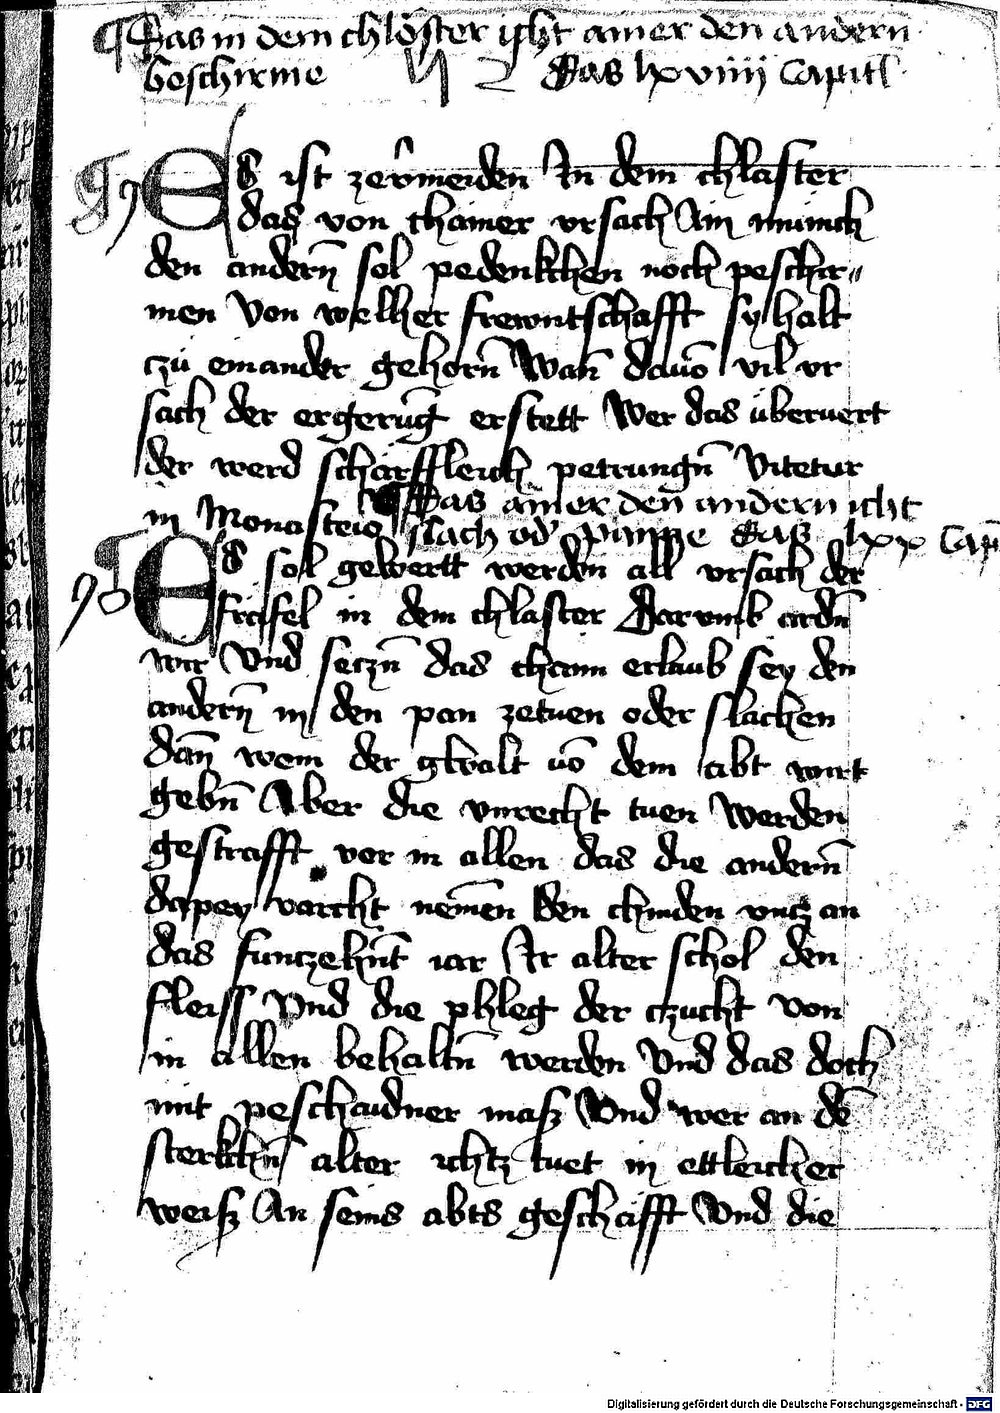 Das in dem chlöster icht ainer den andern
beschirme Das lxviiij Capitl
Es ist zeuermeiden In dem chlaster
das von chainer vrsach Ain münich
den andern̄ sol pedenkchen noch peschir„
men Von welher frewntschafft sy halt
czu einander gehorn̄ Wan̄ dauō vil vr
sach der ergerūg erstett Wer das überuert
der werd schärffleich petrungn̄ Vitetur
in Monasterio
Das ainer den andern icht
slach od' pūnne Das lxx Capi
Es sol gewertt werden all vrsach der
fräfel in dem chlaster Darumb ordn̄
wir Vnd seczn̄ das chaim erlaub sey den
andern̄ in den pan zetuen oder slachen
dan̄ wem der gwalt uō dem abt wirt
gebn̄ Aber die vnrecht tuen Werden
gestrafft vor in allen das die andern̄
dapey varcht nemen̄ Den chinden vncz an
das funczehn̄t iar Ir alter schol den
fleiss Vnd die phleg der czucht von
in allen behaltn̄ werden Vnd das doch
mit peschaidner masz Vnd wer an dē
sterkchn̄ alter ichtz tuet in ettleicher
weisz An seins abts geschäfft Vnd die
Digitalisierung gefördert durch die Deutsche Forschungsgemeinschaft - DFG